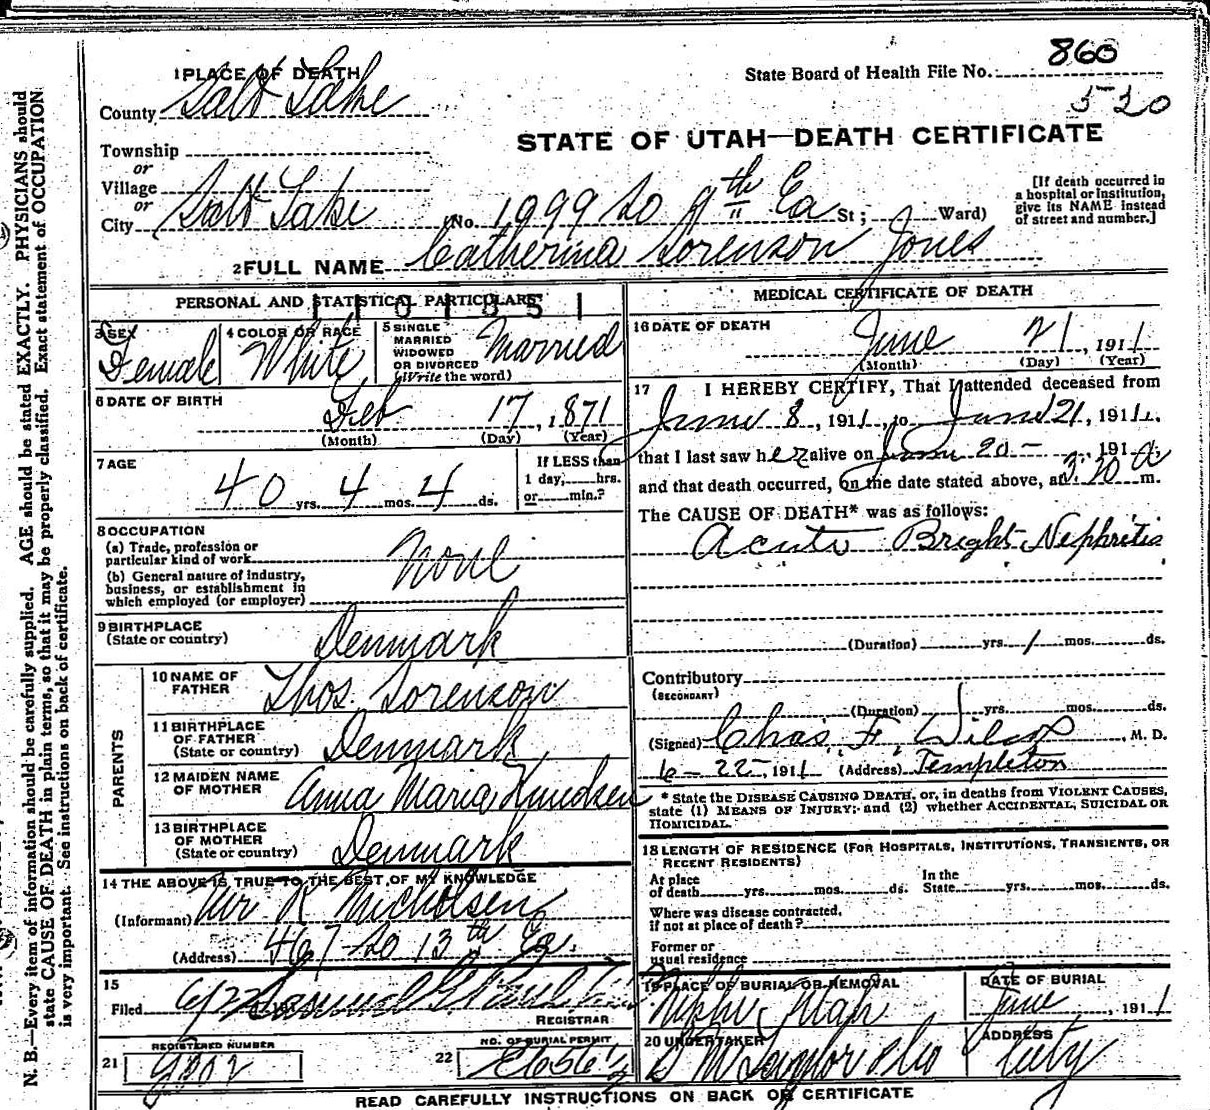 860
State Board of Health File No.
520
1 PLACE OF DEATH
County Salt Lake
STATE OF UTAH—DEATH CERTIFICATE
Township
or
Village
or
City Salt Lake No. 1099 So 9th Ea St; Ward)
[If death occurred in
a hospital or institution,
give its NAME instead
of street and number.]
2 FULL NAME Catherina Sorenson Jones
PERSONAL AND STATISTICAL PARTICULARS
3 SEX Female
4 COLOR OR RACE White
5 SINGLE
MARRIED
WIDOWED
OR DIVORCED
(Write the word) Married
6 DATE OF BIRTH
Feb 17, 1871
(Month) (Day) (Year)
7 AGE
40 yrs. 4 mos. 4 ds.
If LESS than
1 day, hrs.
or min.?
8 OCCUPATION
(a) Trade, profession or
particular kind of work None
(b) General nature of industry,
business, or establishment in
which employed (or employer)
9 BIRTHPLACE
(State or country) Denmark
PARENTS
10 NAME OF
FATHER Thos. Sorenson
11 BIRTHPLACE
OF FATHER
(State or country) Denmark
12 MAIDEN NAME
OF MOTHER Anna Maria Knudsen
13 BIRTHPLACE
OF MOTHER
(State or country) Denmark
14 THE ABOVE IS TRUE TO THE BEST OF MY KNOWLEDGE
(Informant) Mr R Nicholsen
(Address) 467 So 13th Ea.
15
Filed 6/22
REGISTRAR
21 REGISTERED NUMBER
22 NO. OF BURIAL PERMIT
MEDICAL CERTIFICATE OF DEATH
16 DATE OF DEATH
June 21, 1911
(Month) (Day) (Year)
17 I HEREBY CERTIFY, That I attended deceased from
June 8, 1911, to June 21, 1911.
that I last saw her alive on June 20—, 191
and that death occurred, on the date stated above, at 3.20 A m.
The CAUSE OF DEATH* was as follows:
Acute Brights Nephritis
(Duration) yrs. 1 mos. ds.
Contributory
(SECONDARY)
(Duration) yrs. mos. ds.
(Signed) Chas. F. Wilcox, M. D.
6—22—, 1911 (Address) Templeton
* State the DISEASE CAUSING DEATH, or, in deaths from VIOLENT CAUSES,
state (1) MEANS OF INJURY; and (2) whether ACCIDENTAL, SUICIDAL OR
HOMICIDAL.
18 LENGTH OF RESIDENCE (FOR HOSPITALS, INSTITUTIONS, TRANSIENTS, OR
RECENT RESIDENTS)
At place
of death yrs. mos. ds.
In the
State yrs. mos. ds.
Where was disease contracted,
if not at place of death?
Former or
usual residence
19 PLACE OF BURIAL OR REMOVAL
Nephi, Utah
DATE OF BURIAL
June, 1911
20 UNDERTAKER
ADDRESS
City
READ CAREFULLY INSTRUCTIONS ON BACK OF CERTIFICATE
N. B.—Every item of information should be carefully supplied. AGE should be stated EXACTLY. PHYSICIANS should
state CAUSE OF DEATH in plain terms, so that it may be properly classified. Exact statement of OCCUPATION
is very important. See instructions on back of certificate.